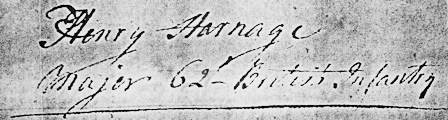 Henry Harnage
Major 62d British Infantry